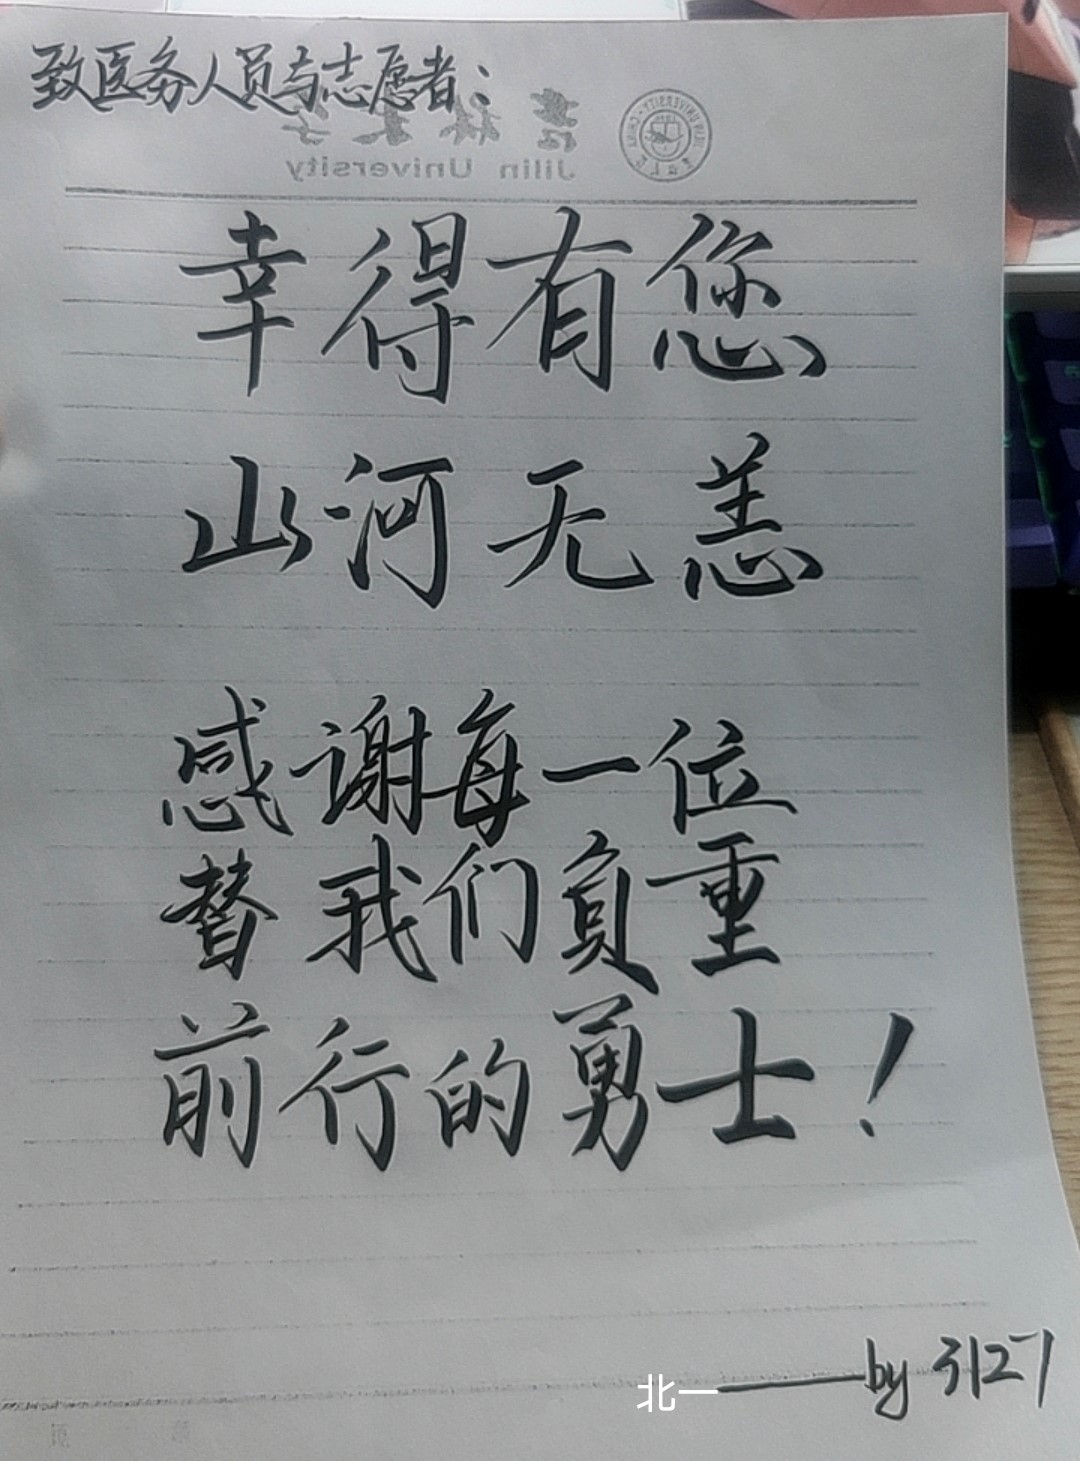 致医务人员与志愿者：
吉林大学
Jilin University
JILIN UNIVERSITY·CHINA
幸得有您
山河无恙
感谢每一位
替我们负重
前行的勇士！
北一——by 3127
第 页